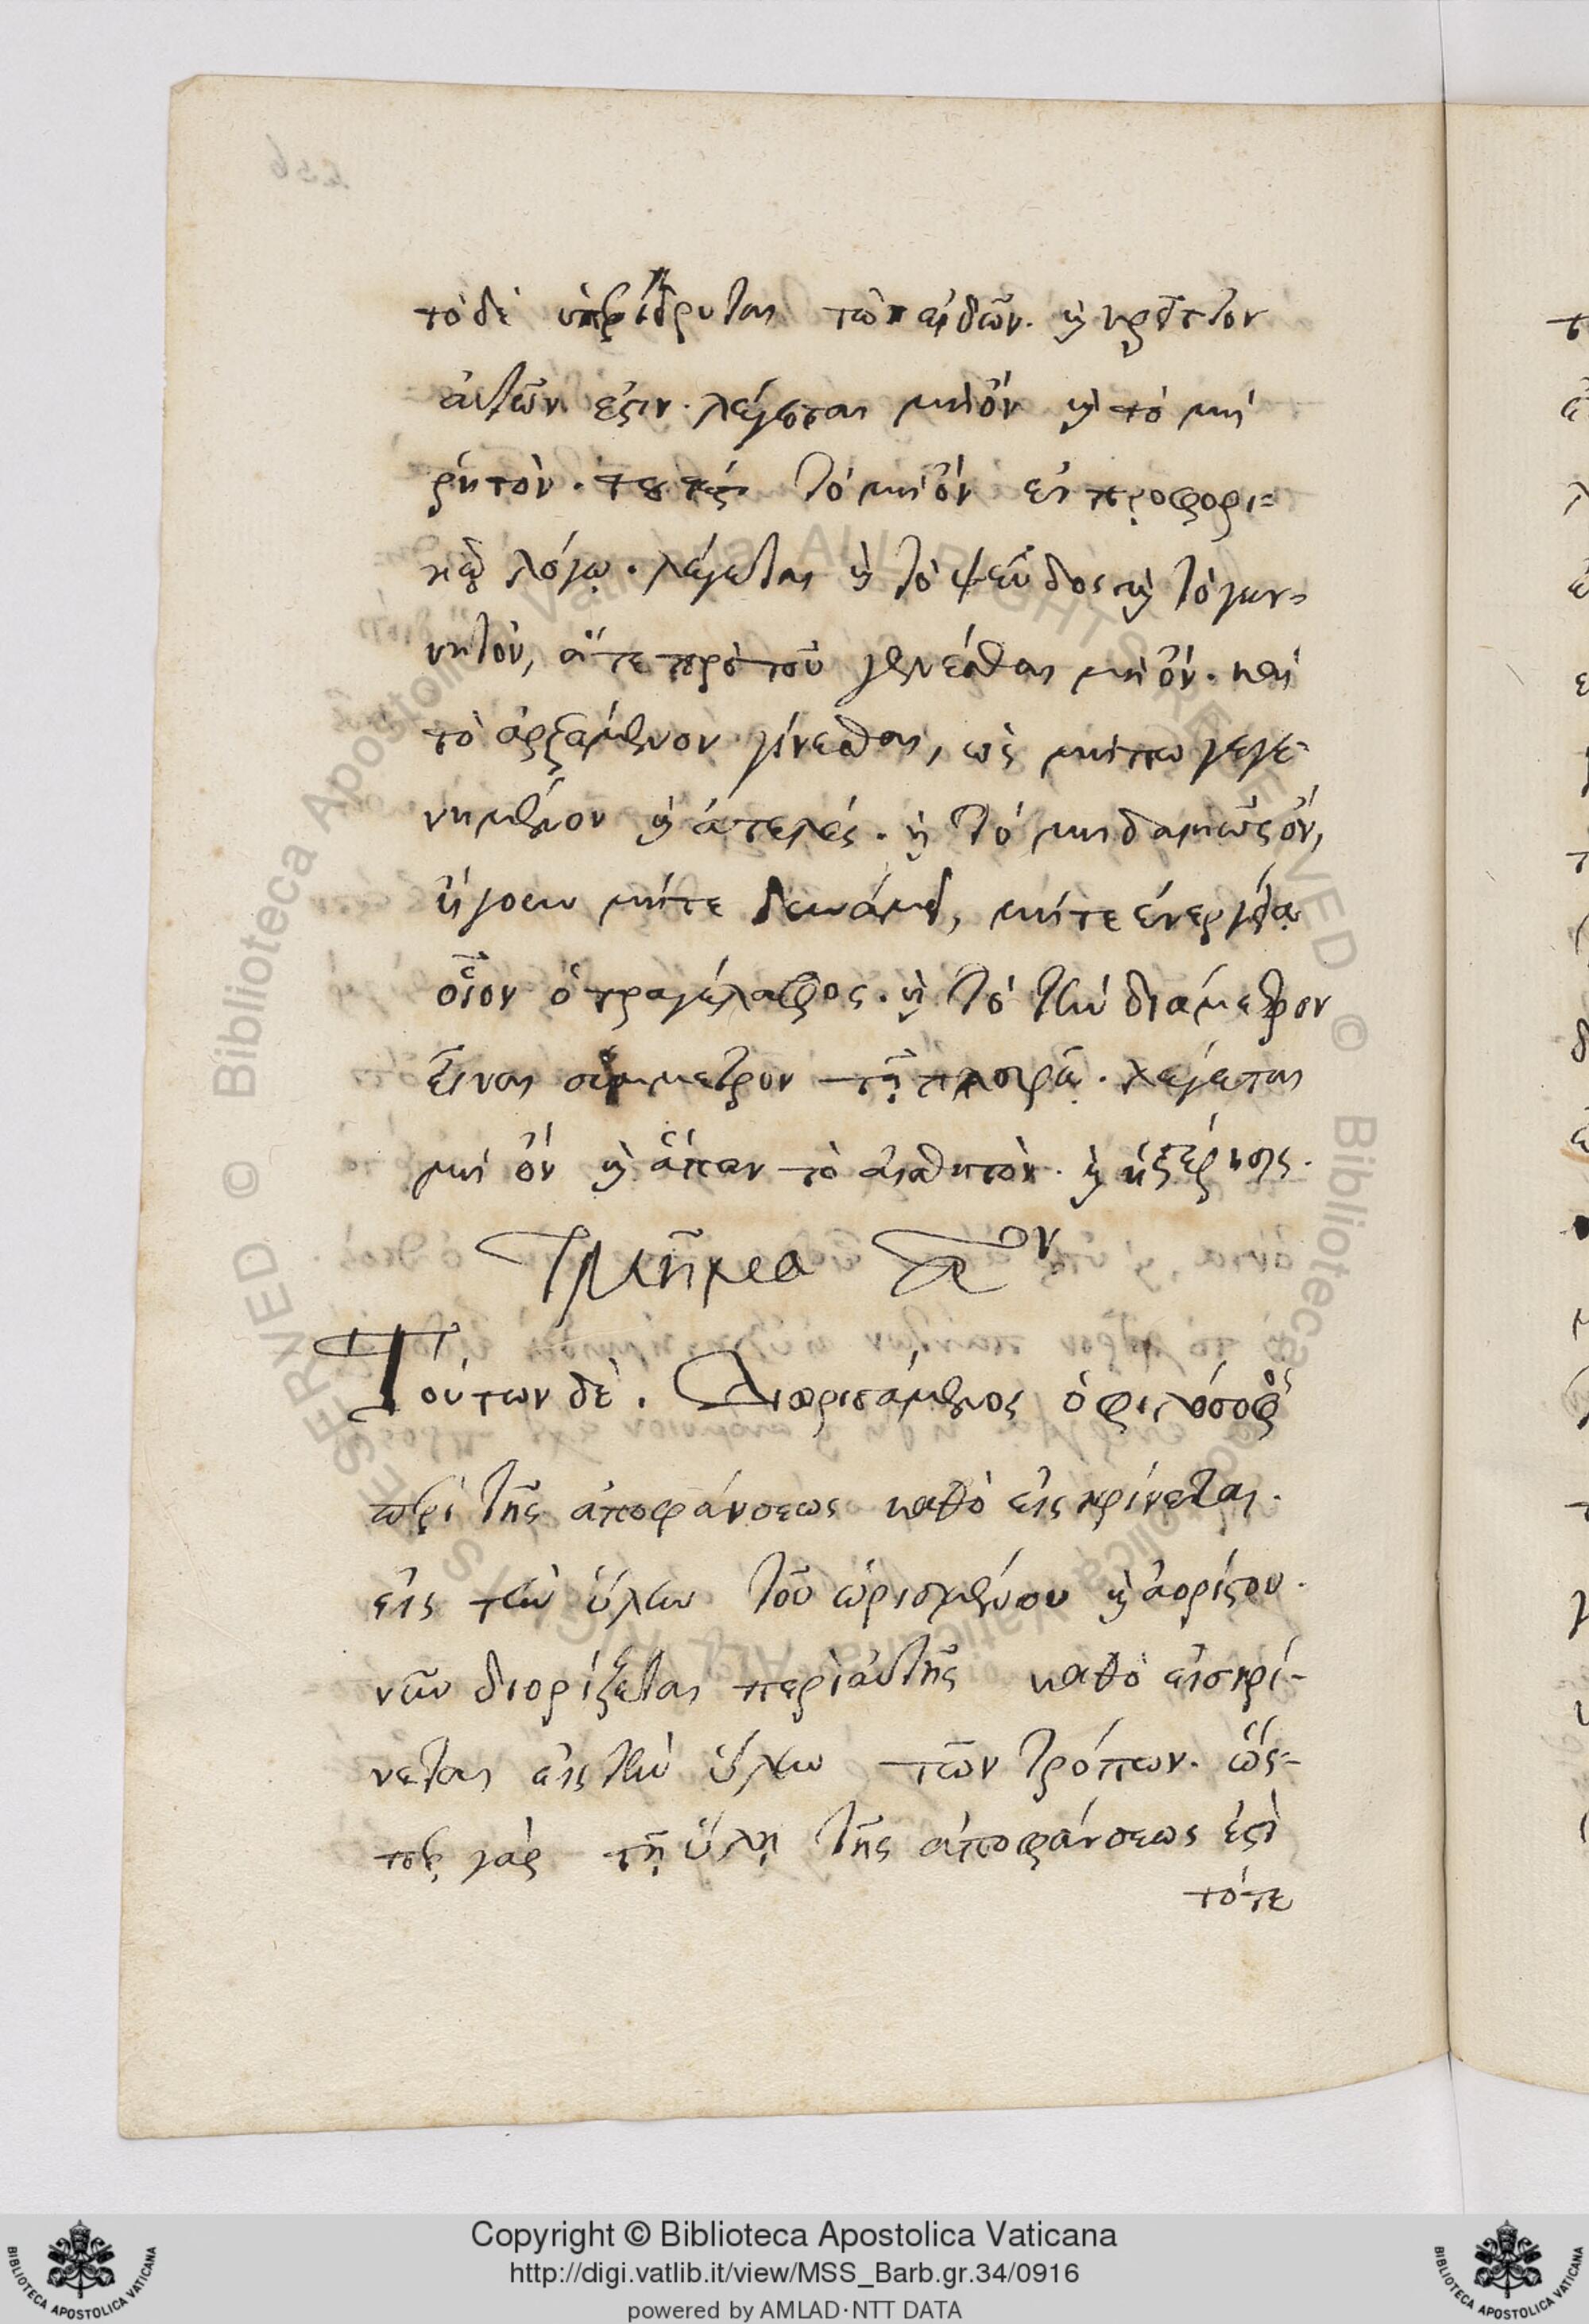 τὸ δὲ ὑπερίδρυται τῶν εἰδῶν. καὶ κρεῖττον
αὐτῶν ἐστιν. λέγεται μὴ ὂν καὶ τὸ μὴ
ῥητὸν. τὸ μὴ ὂν ἐν προφορι=
κῷ λόγῳ. λέγεται καὶ τὸ ψεῦδος καὶ τὸ γεν=
νητὸν, ἅτε πρὸ τοῦ γενέσθαι μὴ ὄν. καὶ
τὸ ἀρξάμενον γίνεσθαι, ὡς μήπω γεγε-
νημένον καὶ ἀτελές. καὶ τὸ μηδαμῶς ὂν,
ἤγουν μήτε δυνάμει, μήτε ἐνεργείᾳ
οἷον ὁ τραγέλαφος. καὶ τὸ τὴν διάμετρον
εἶναι σύμμετρον τῇ πλευρᾷ. λέγεται
μὴ ὂν καὶ ἅπαν τὸ αἰσθητὸν. καὶ ἡ στέρησις.
Τμῆμα
Τούτων δὲ. Διορισάμενος ὁ φιλόσοφος
περὶ τῆς ἀποφάνσεως καθὸ εἰσκρίνεται
εἰς τὴν ὕλην τοῦ ὡρισμένου καὶ ἀορίστου.
νῦν διορίζεται περὶ αὐτῆς καθὸ εἰσκρί-
νεται εἰς τὴν ὕλην τῶν τρόπων. ὥσ-
περ γὰρ τῇ ὕλῃ τῆς ἀποφάνσεως ἐστὶ
τότε
Copyright © Biblioteca Apostolica Vaticana
http://digi.vatlib.it/view/MSS_Barb.gr.34/0916
powered by AMLAD·NTT DATA